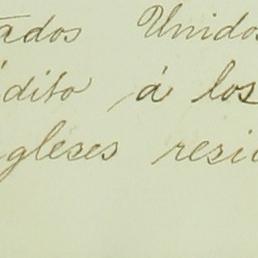 tados Unidos
dito á los
gleses resid